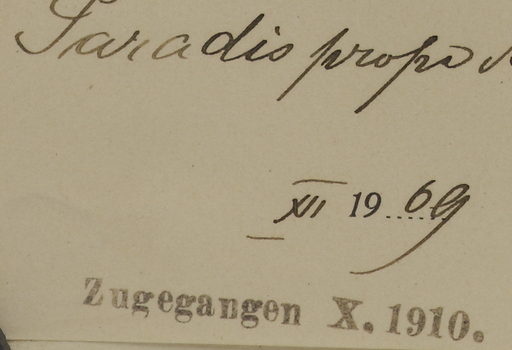 Paradis prope
XII 19 09
Zugegangen X. 1910.